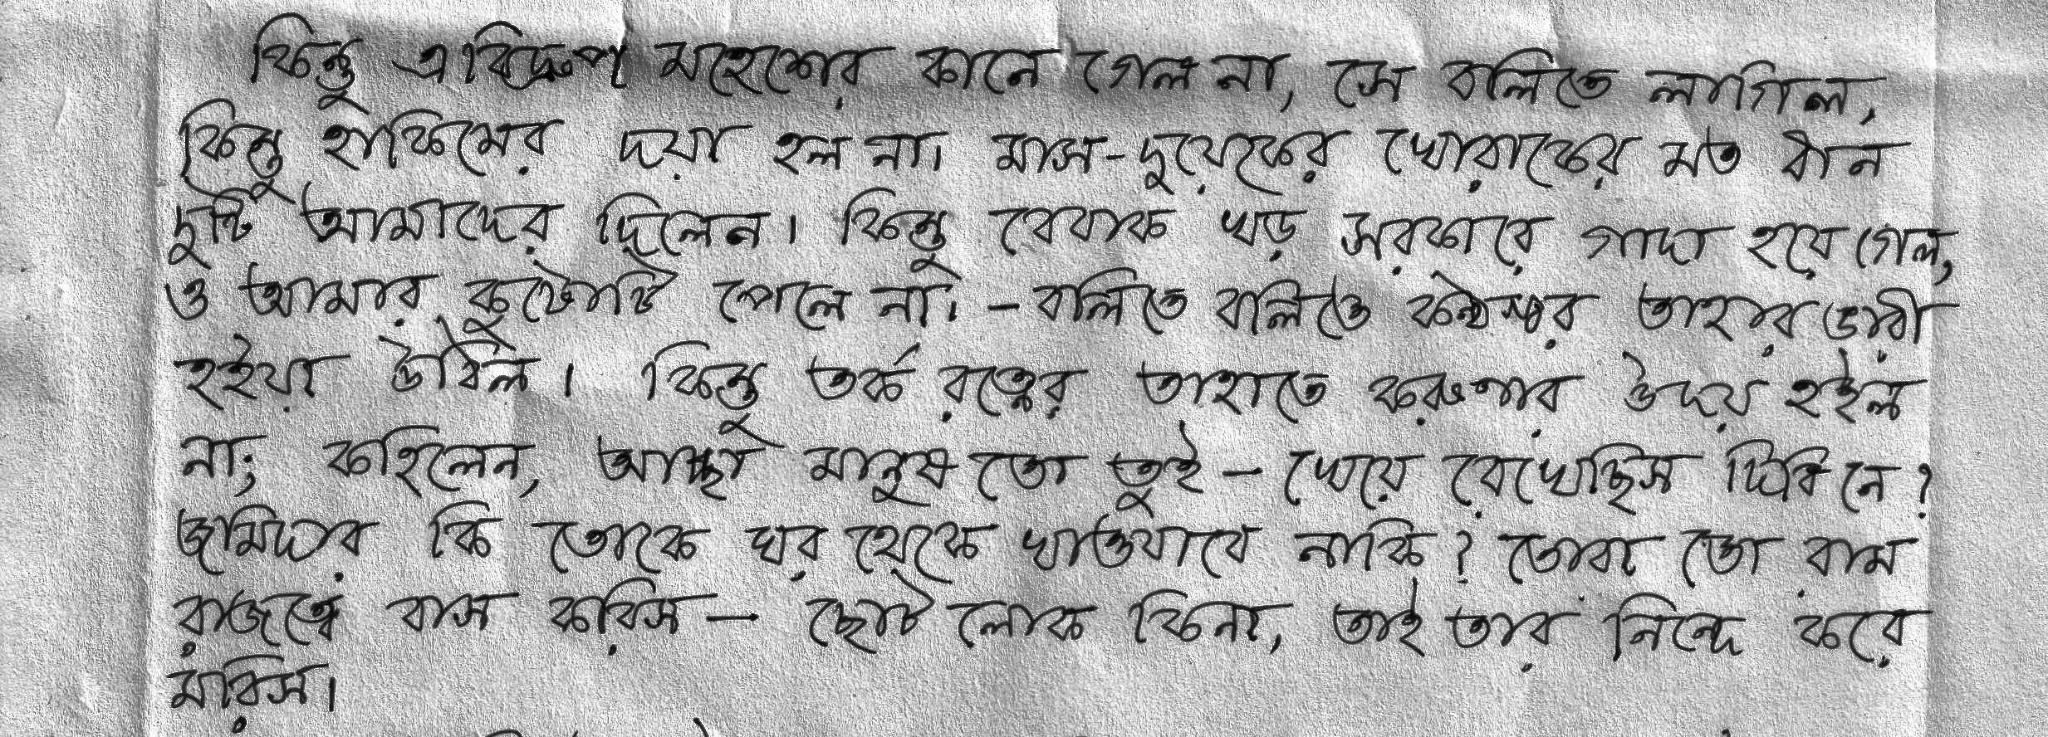 কিন্তু এ বিদ্রুপ মহেশের কানে গেল না, সে বলিতে লাগিল,
কিন্তু হাকিমের দয়া হল না। মাস-দুয়েকের খোরাকের মত ধান
দুটি আমাদের দিলেন। কিন্তু বেবাক খড় সরকারে গাদা হয়ে গেল,
ও আমার কুটোটি পেলে না। - বলিতে বলিতে কন্ঠস্বর তাহার ভারী
হইয়া উঠিল। কিন্তু তর্ক রত্নের তাহাতে করুণার উদয় হইল
না; কহিলেন, আচ্ছা মানুষ তো তুই - খেয়ে রেখেছিস দিবি নে?
জমিদার কি তোকে ঘর থেকে খাওয়াবে নাকি? তোরা তো রাম
রাজত্বে বাস করিস - ছোট লোক কিনা, তাই তার নিন্দে করে
মরিস।